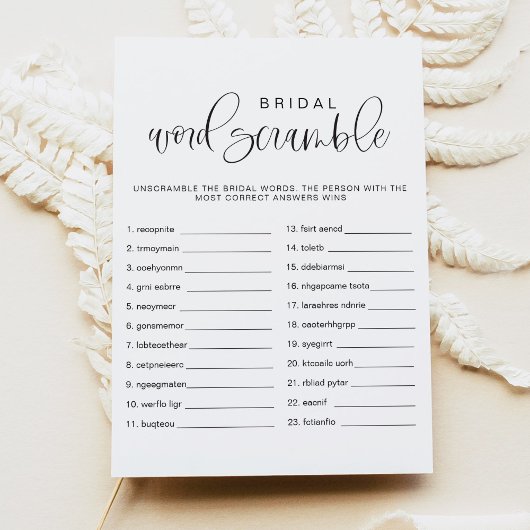 BRIDAL
word scramble
UNSCRAMBLE THE BRIDAL WORDS. THE PERSON WITH THE
MOST CORRECT ANSWERS WINS
1. recopnite
2. trmoymain
3. ooehyonmn
4. grni eabrre
5. neoymecr
6. gonsmemor
7. lobtecethear
8. cetpneieerc
9. ngeegmaten
10. werflo ligr
11. buqteou
13. fsirt aencd
14. toletb
15. ddebiarmsi
16. nhgapcame tsota
17. laraehres ndnrie
18. caoterhhgrpp
19. syegirrt
20. ktccailc uorh
21. rbliad pytar
22. eacnif
23. fctianfio